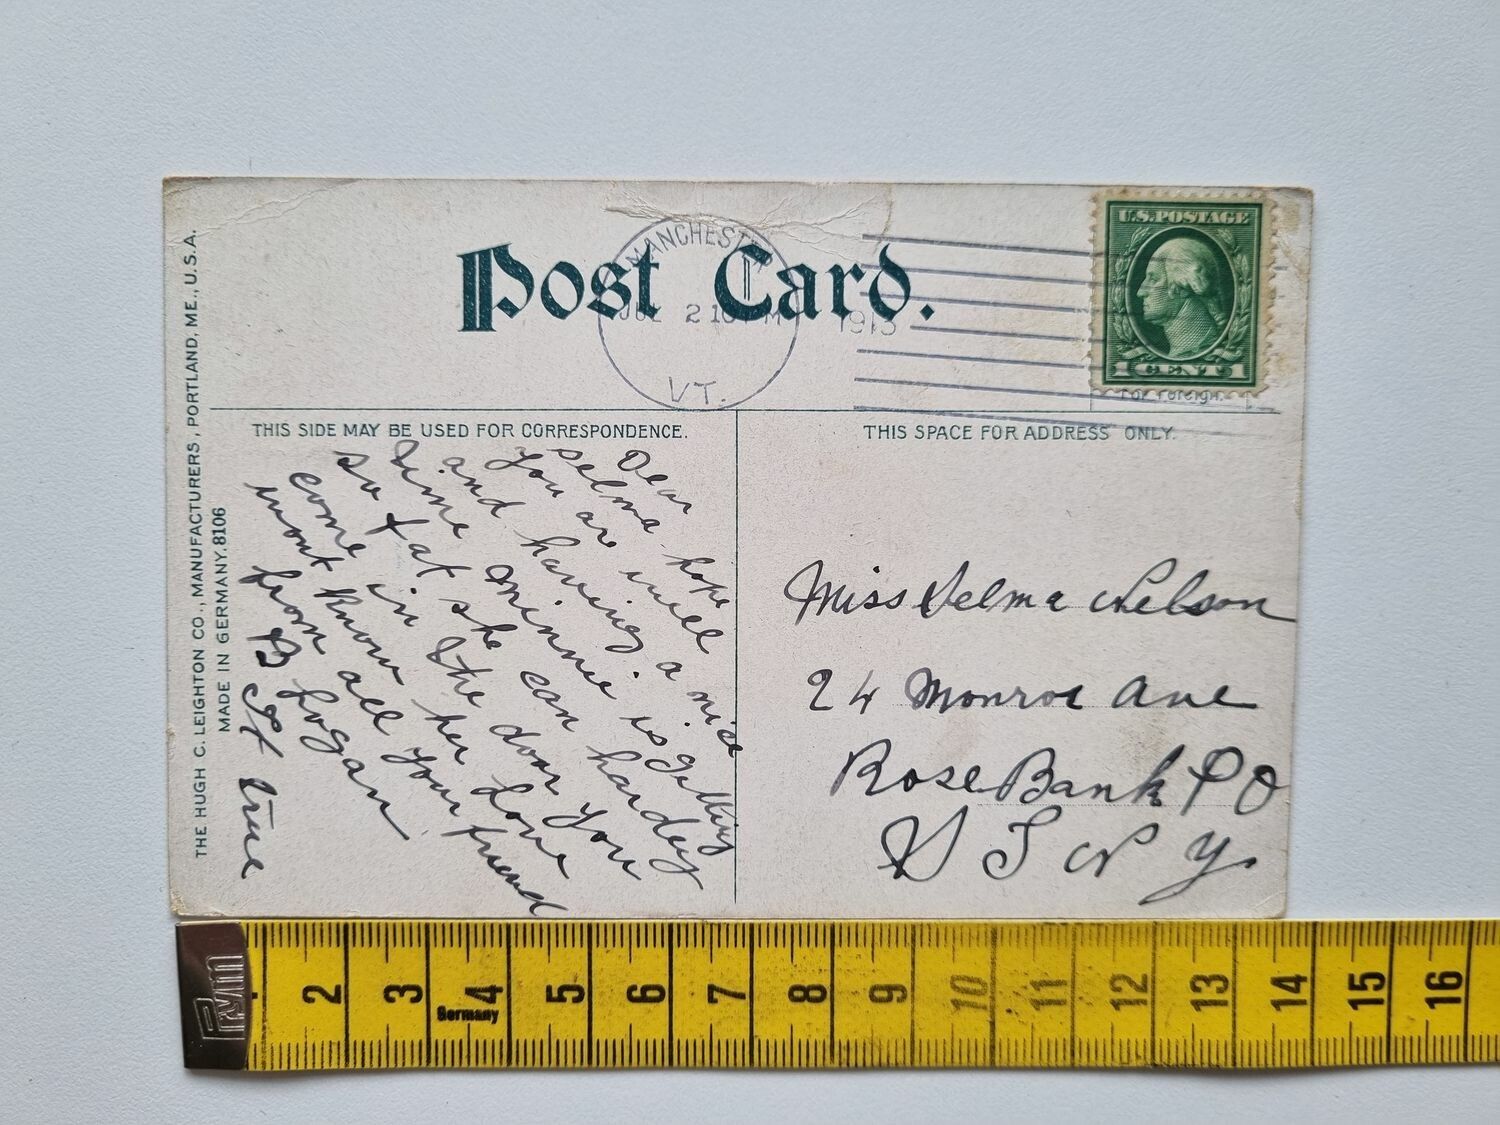 THE HUGH C. LEIGHTON CO., MANUFACTURERS, PORTLAND, ME., U.S.A.
MADE IN GERMANY. 8106
Post Card.
MANCHESTER
JUL 2 M 1913
VT.
U.S.POSTAGE
1 CENT 1
For Foreign.
THIS SIDE MAY BE USED FOR CORRESPONDENCE.
THIS SPACE FOR ADDRESS ONLY.
Dear
Selma hope
you are well
and having a nice
time Minnie is getting
so fat she can hardey
come in the door you
wont know her Love
from all your friend
B Logan
Miss Selma Nelson
24 Monroe Ave
Rose Bank PO
S I N Y.
Prym
2 3 4 5 6 7 8 9 10 11 12 13 14 15 16
Germany